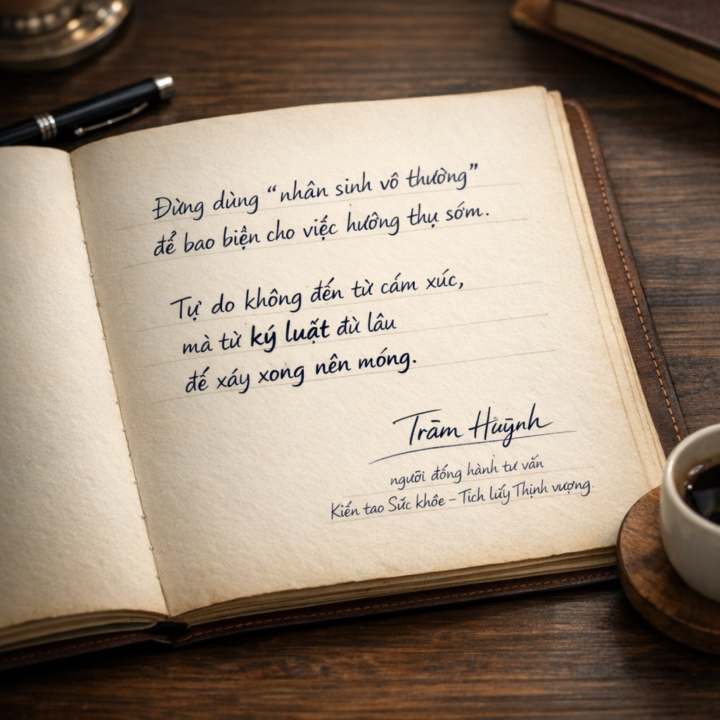 Đừng dùng “nhân sinh vô thường”
để bao biện cho việc hưởng thụ sớm.
Tự do không đến từ cám xúc,
mà từ ký luật đừ lâu
đế xáy xong nên móng.
Trām Huỳnh
người đống hành tư vấn
Kiến tao Sức khỏe – Tích lũy Thịnh vượng.